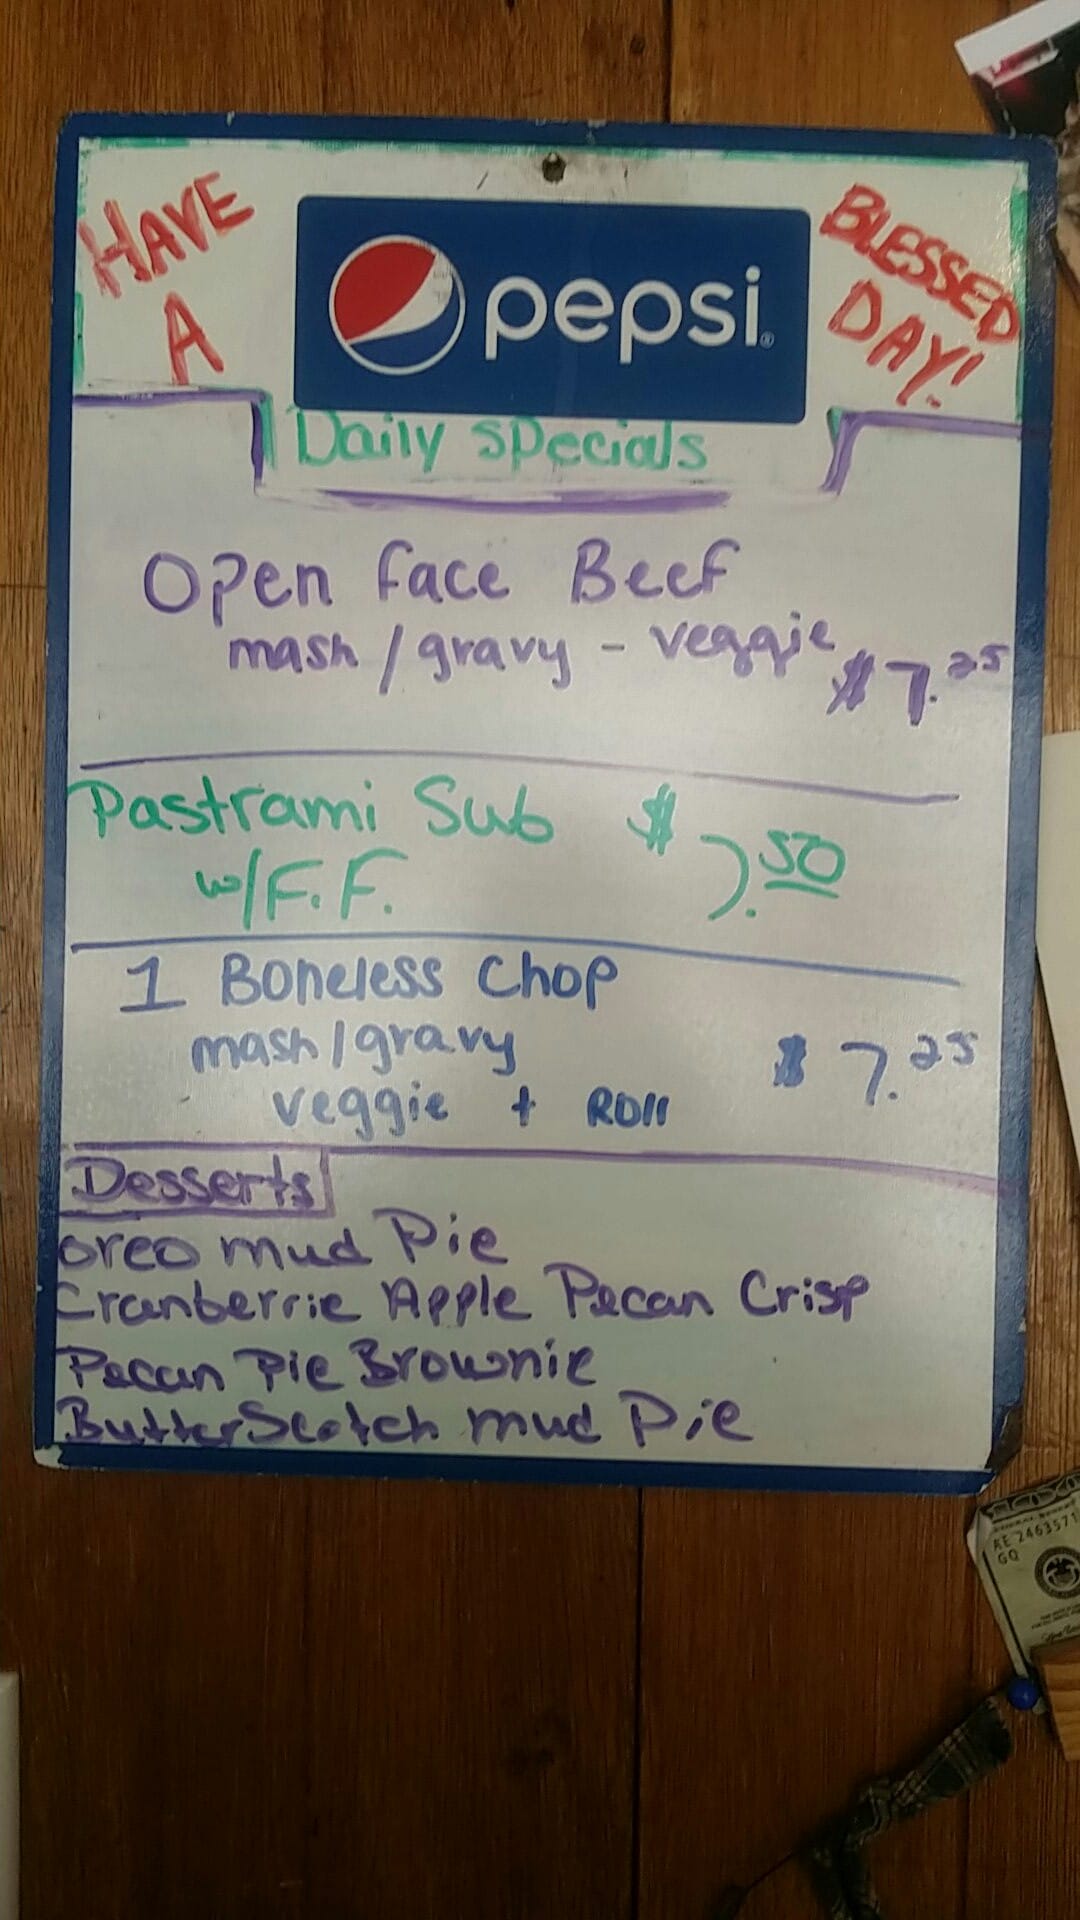 HAVE
A
pepsi
BLESSED
DAY!
Daily Specials
Open Face Beef
mash/gravy - veggie $7.25
Pastrami Sub $7.50
w/F.F.
1 Boneless Chop
mash/gravy $7.25
veggie + Roll
Desserts
oreo mud Pie
Cranberrie Apple Pecan Crisp
Pecan Pie Brownie
ButterScotch mud Pie
AE 2463571
GQ